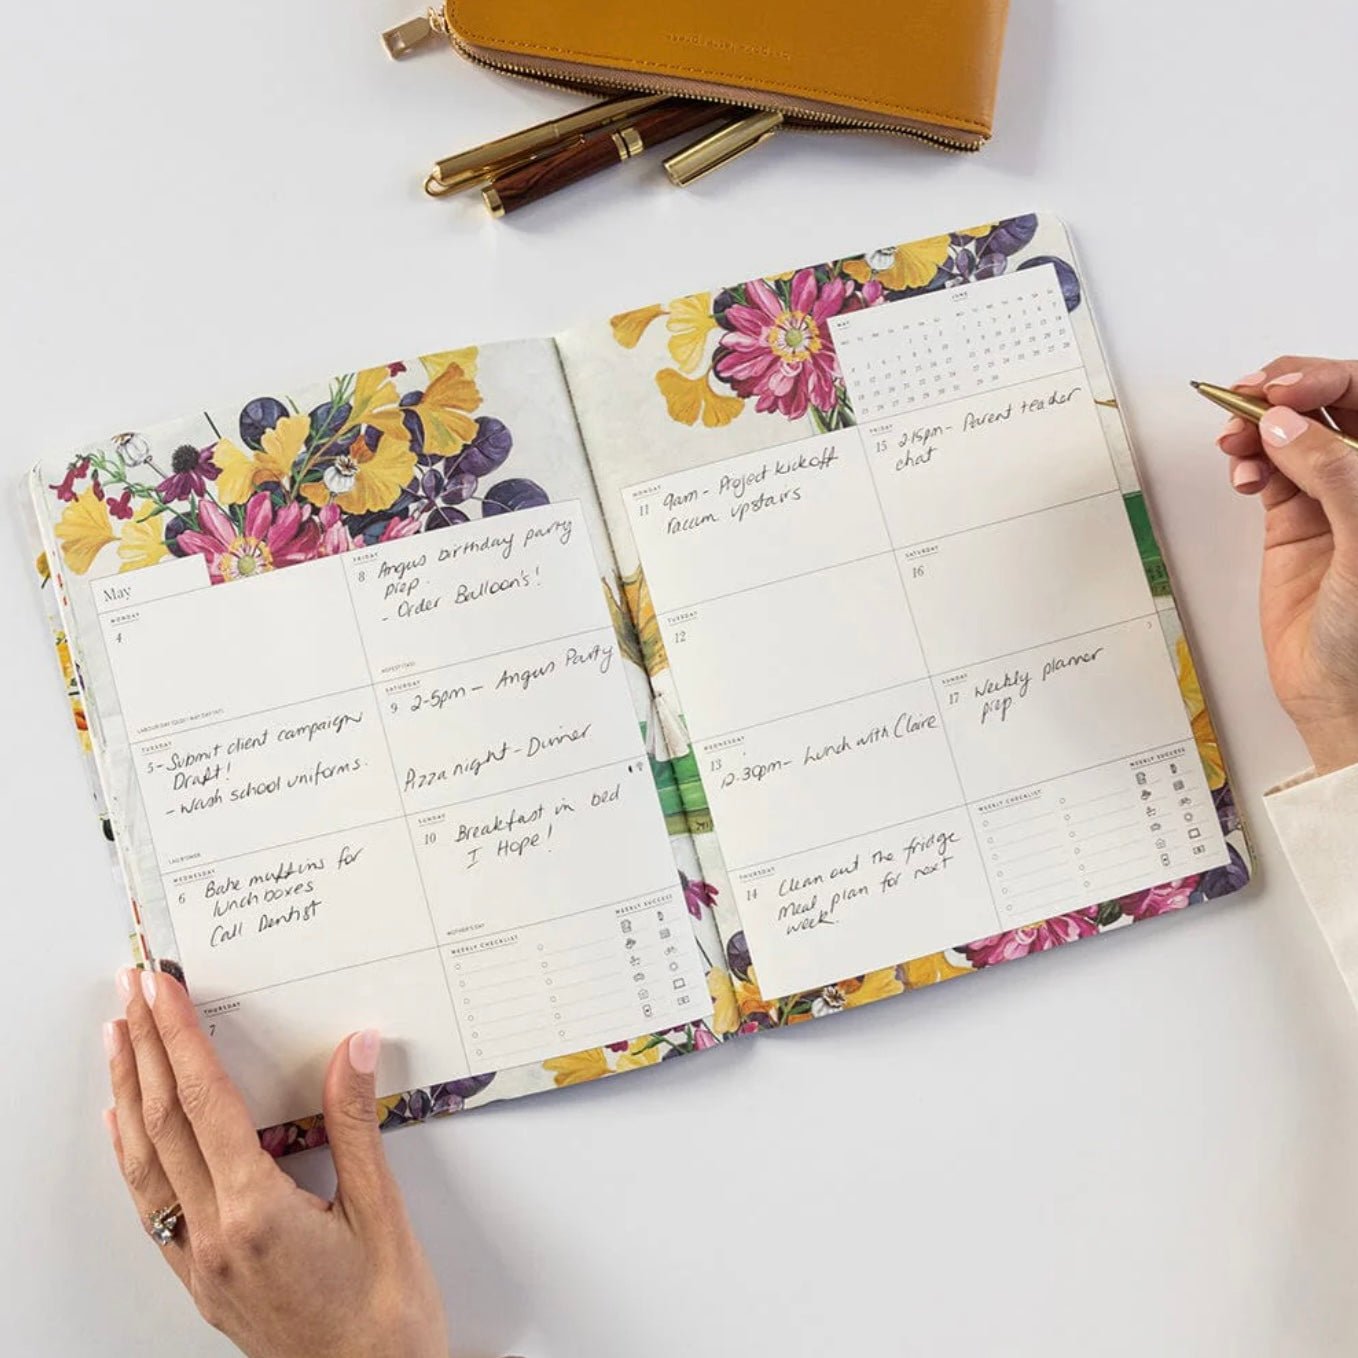 May
MONDAY
4
LABOUR DAY (QLD) / MAY DAY (NT)
TUESDAY
5 - Submit client campaign
Draft!
- Wash school uniforms.
WEDNESDAY
6
Bake muffins for
lunch boxes
Call Dentist
THURSDAY
7
FRIDAY
8
Angus birthday party
prep.
- Order Balloon's!
SATURDAY
9
2-5pm - Angus Party
Pizza night - Dinner
SUNDAY
10
Breakfast in bed
I Hope!
MOTHER'S DAY
WEEKLY CHECKLIST
WEEKLY SUCCESS
MAY
JUNE
MONDAY
11
9am - Project kickoff
raccum upstairs
TUESDAY
12
WEDNESDAY
13
12.30pm - Lunch with Claire
THURSDAY
14
Clean out the fridge
meal plan for next
week.
FRIDAY
15
2.15pm - Parent teacher
chat
SATURDAY
16
SUNDAY
17
Weekly planner
prep
WEEKLY CHECKLIST
WEEKLY SUCCESS